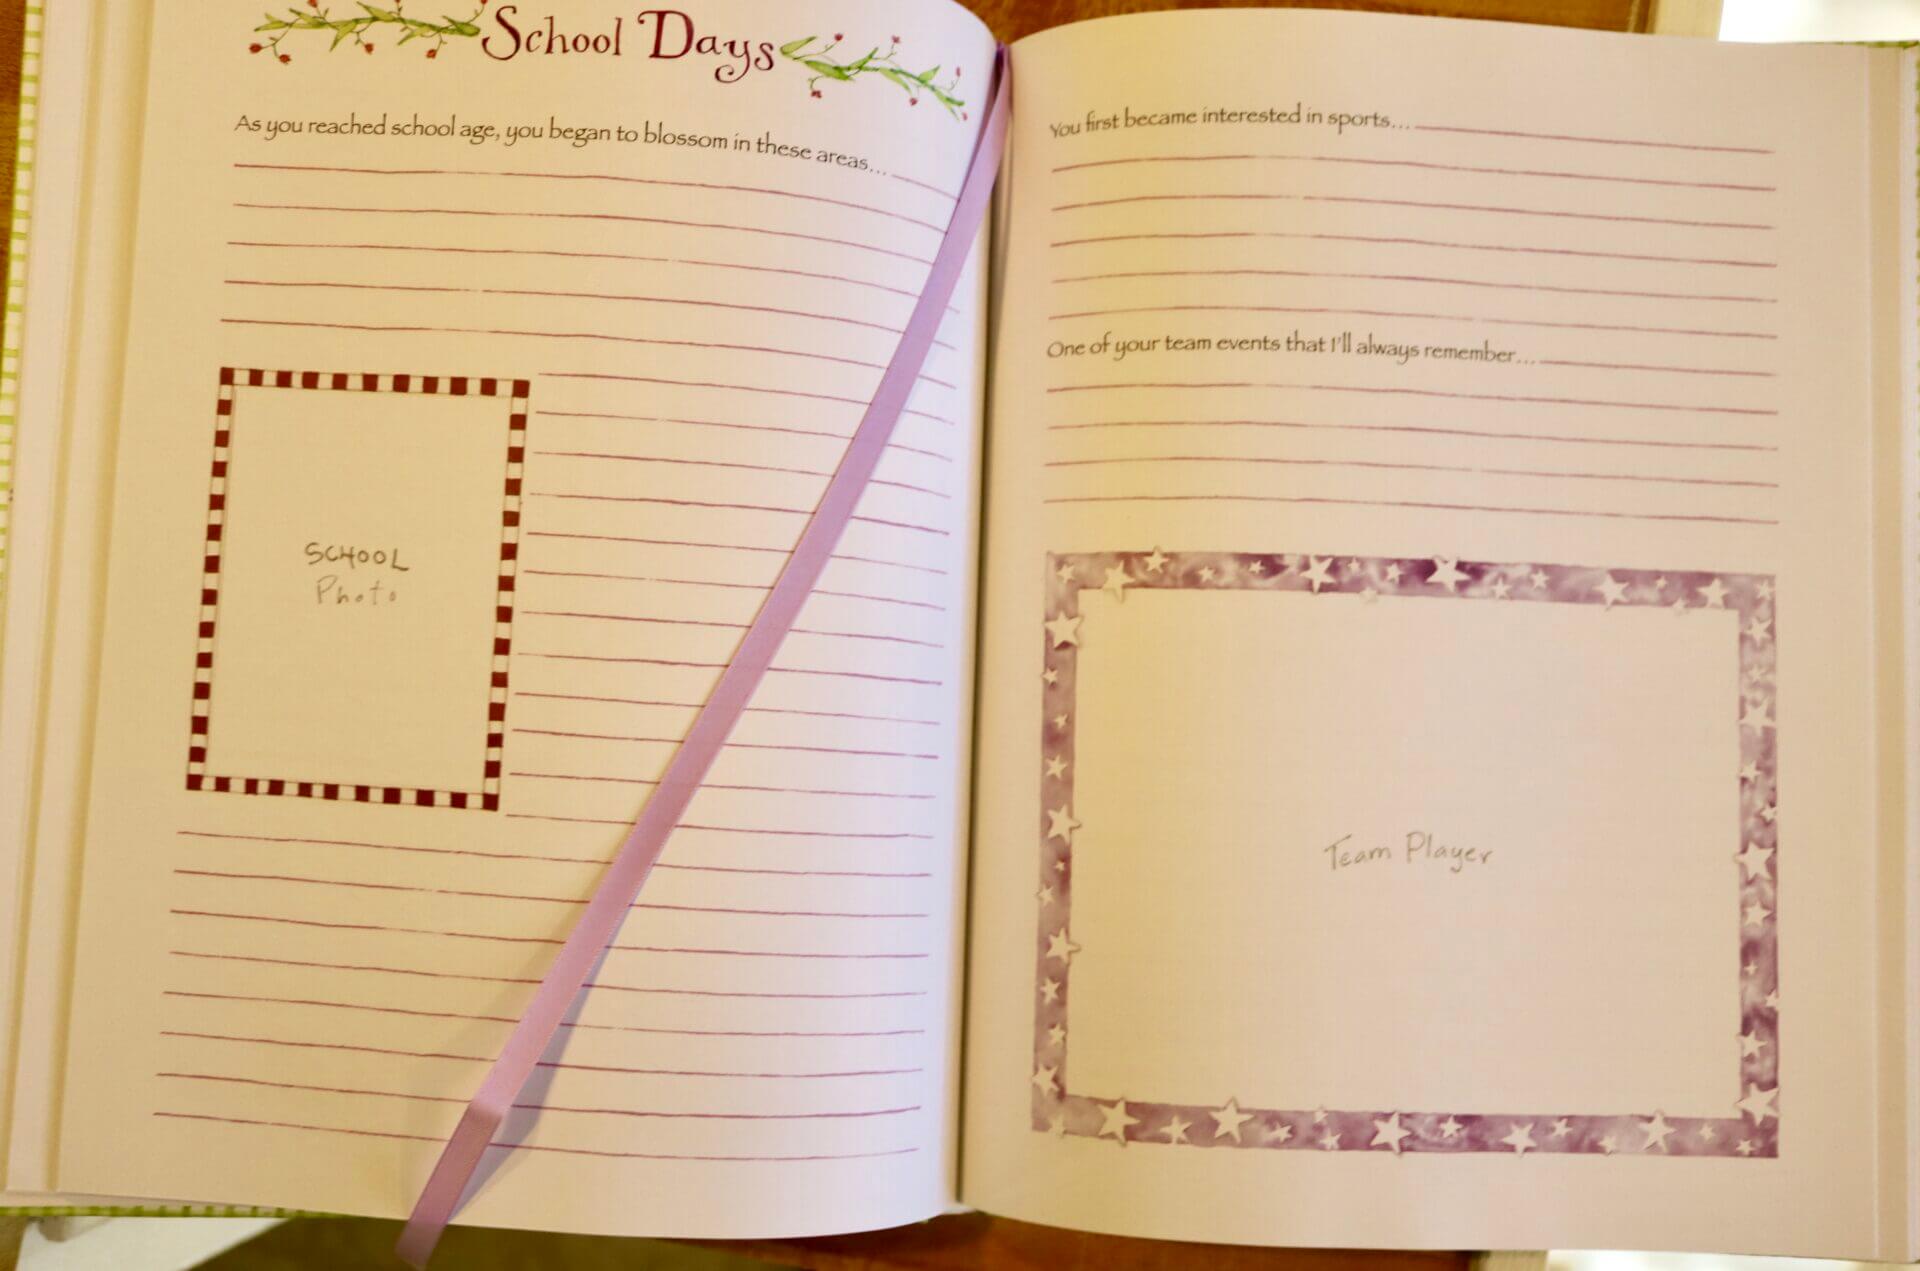 School Days
As you reached school age, you began to blossom in these areas...
SCHOOL
Photo
You first became interested in sports...
One of your team events that I'll always remember...
Team Player